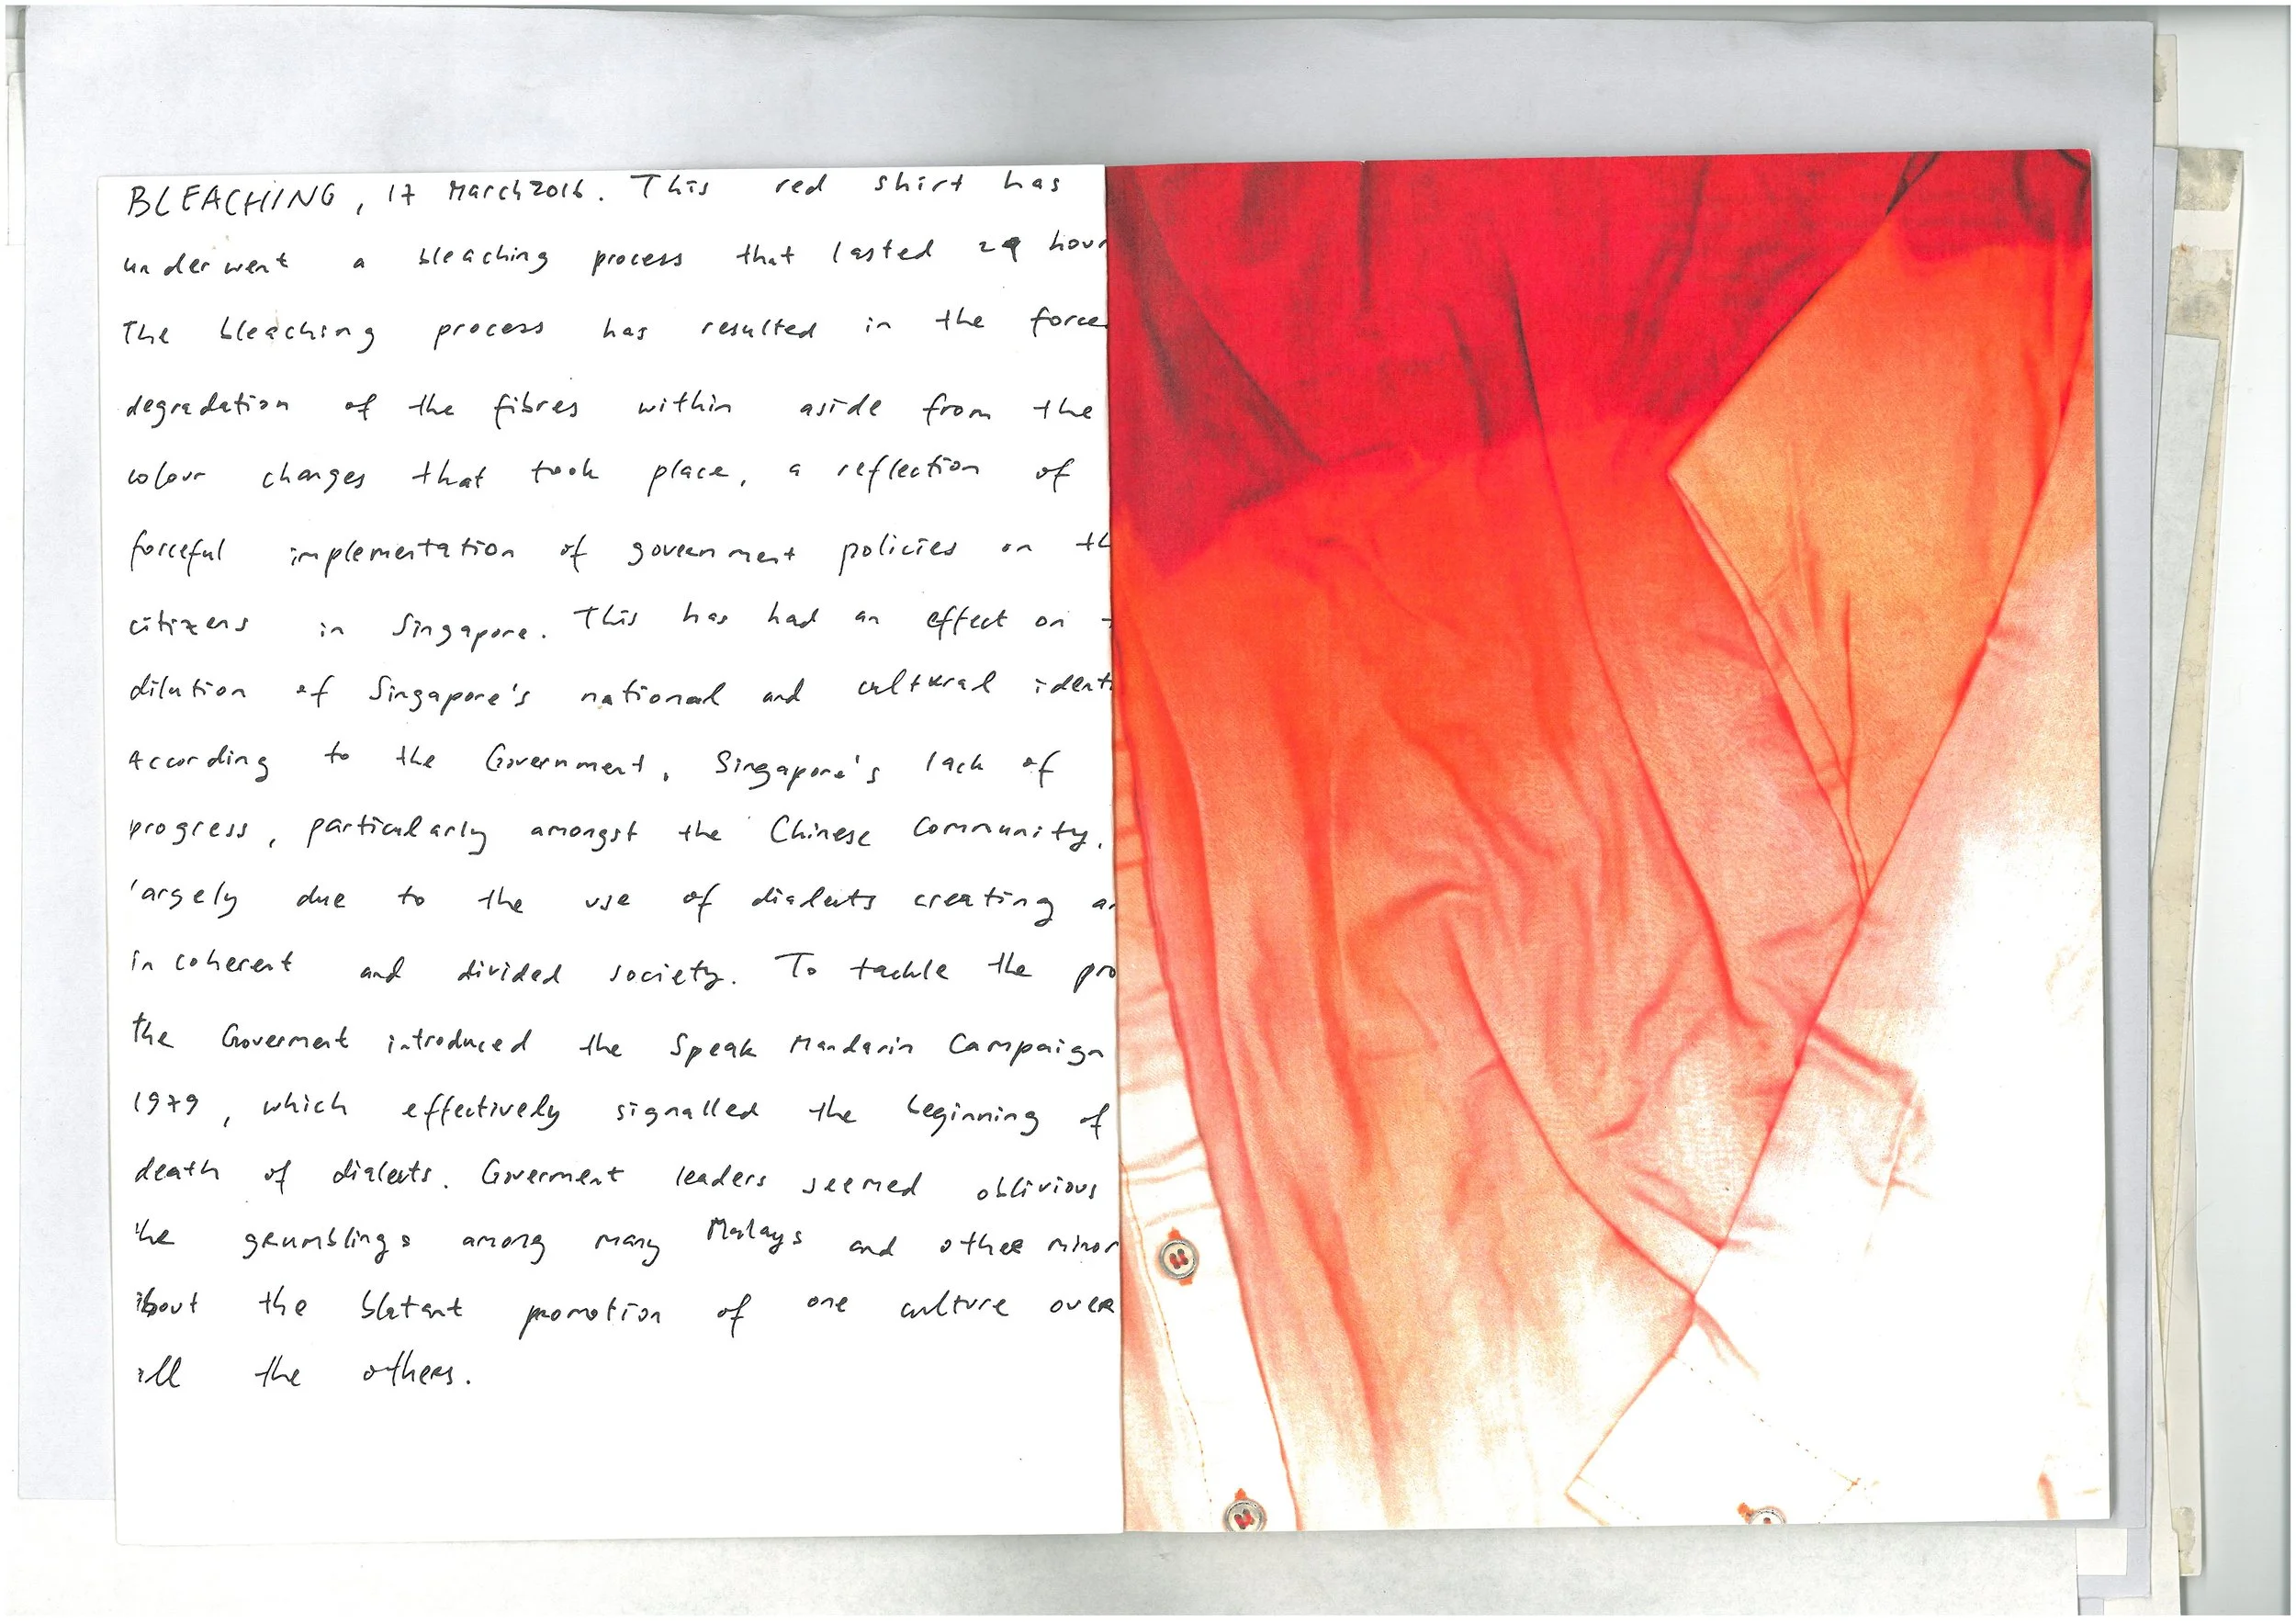 BLEACHING, 17 March 2016. This red shirt has
underwent a bleaching process that lasted hour
The bleaching process has resulted in the force
degradation of the fibres within aside from the
colour changes that took place, a reflection of
forceful implementation of government policies on th
citizens in Singapore. This has had an effect on
dilution of Singapore's national and cultural identi
According to the Government, Singapore's lack of
progress, particularly amongst the Chinese Community,
largely due to the use of dialects creating an
incoherent and divided society. To tackle the pro
the Goverment introduced the Speak Mandarin Campaign
1979, which effectively signalled the beginning of
death of dialects. Goverment leaders seemed oblivious
the grumblings among many Malays and other minor
about the blatant promotion of one culture over
all the others.